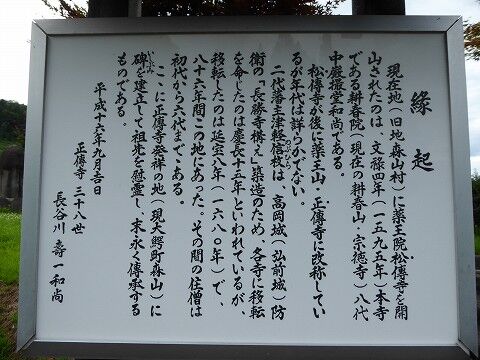 緣起
現在地(旧地・森山村)に薬王院松傳寺を開
山されたのは、文禄四年(一五九五年)本寺
である耕春院(現在の耕春山・宗徳寺)八代
中巌撮堂和尚である。
松傳寺は後に薬王山・正傳寺に改称してい
るが年代は詳らかでない。
二代藩主津軽信枚は、高岡城(弘前城)防
衛の「長勝寺構え」築造のため、各寺に移転
を命じたのは慶長十五年といわれているが、
移転したのは延宝八年(一六八〇年)で、
八十六年間この地にあった。その間の住僧は
初代から六代まである。
ここに正傳寺発祥の地(現大鰐町森山)に
碑を建立して祖先を慰霊し、末永く傳承する
ものである。
平成十六年九月吉日
正傳寺 三十八世
長谷川 壽一和尚